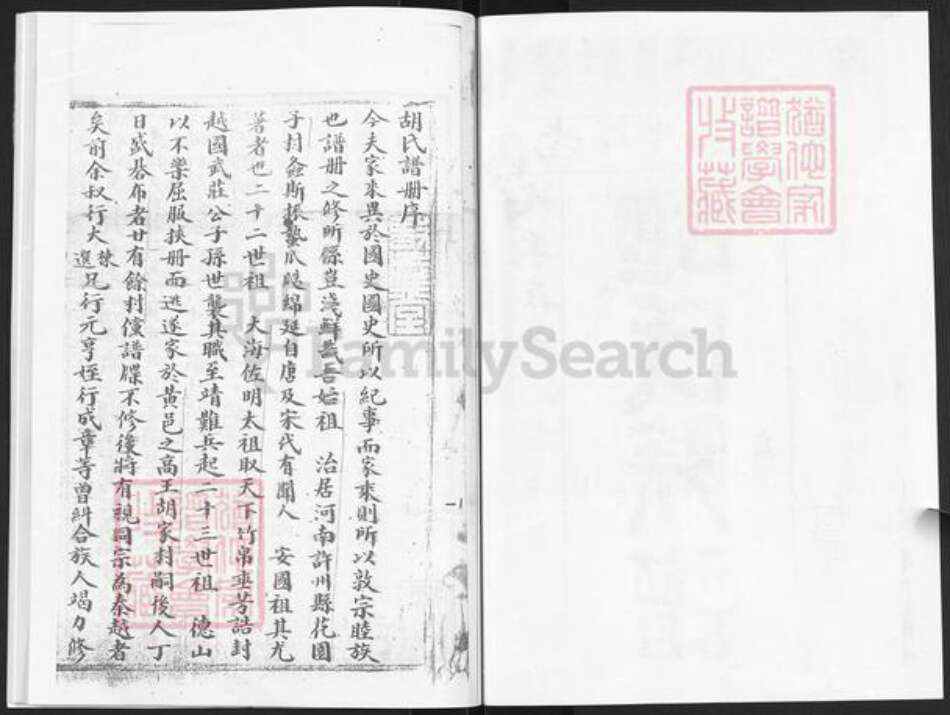 胡氏譜册序
今夫家乘異於國史國史所以紀事而家乘則所以敦宗睦族
也譜册之修所係豈淺鮮哉吾始祖 治居河南許州縣花園
子封螽斯振蟄瓜瓞綿延自唐及宋代有聞人 安國祖其尤
著者也二十二世祖 大海佐明太祖取天下竹帛垂芳誥封
越國武莊公子孫世襲其職至靖難兵起二十三世祖 德山
以不樂屈服挾册而逃遂家於黃邑之高王胡家村嗣後人丁
日盛碁布者廿有餘村僮譜牒不修後將有視同宗為秦越者
矣前余叔行大棟選兄行元亨姪行成章等曾糾合族人竭力修
猶他家
譜學會
收藏
FamilySearch